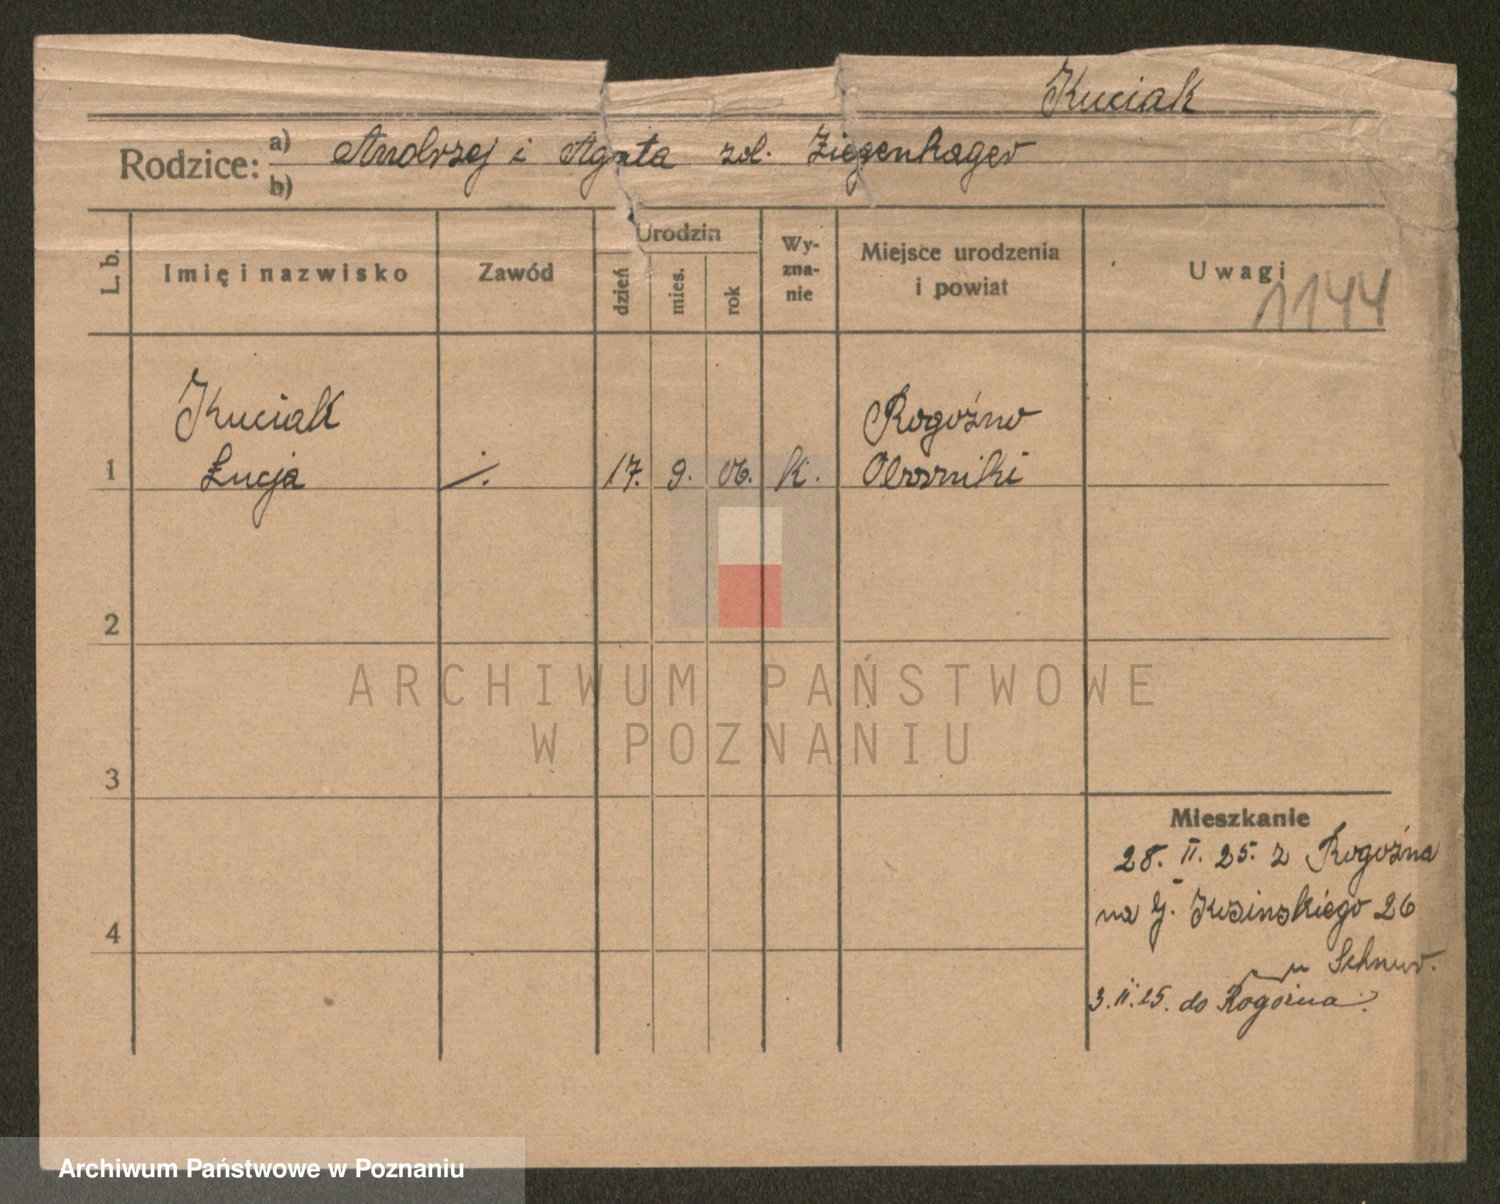 Kuciak
Rodzice: a) Andrzej i Agata zd. Ziegenhager
b)
L. b. Imię i nazwisko Zawód Urodzin dzień mies. rok Wy-zna-nie Miejsce urodzenia i powiat Uwagi
1144
Kuciak Rogoźno
1 Łucja ./. 17. 9. 06. k. Oborniki
2
3
4
ARCHIWUM PAŃSTWOWE
W POZNANIU
Mieszkanie
28. II. 25. z Rogoźna
na G. 26
u
3. II. 25. do Rogoźna.
Archiwum Państwowe w Poznaniu